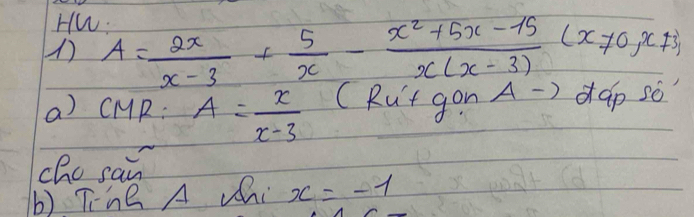 HW:
1) A = 2x/(x-3) + 5/x - (x² + 5x - 15)/(x(x-3)) (x≠0, x≠3)
a) CMR: A = x/(x-3) (Rút gọn A -> đáp số
cho sẵn
b) Tính A khi x = -1